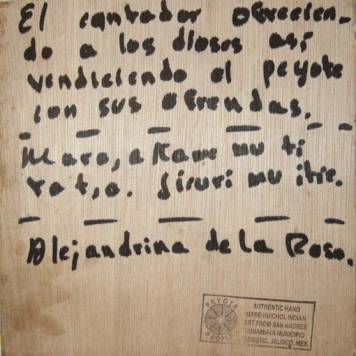 El cantador ofrecien-
do a los dioses así
vendiciendo el peyote
con sus ofrendas.
Mara, a Kame mu ti
Alejandrina de La Rosa.
PEYOTE PEOPLE
AUTHENTIC HAND
MADE HUICHOL INDIAN
ART FROM SAN ANDRES
COHAMIATA MUNICIPIO
MEZQUITIC, JALISCO, MEX.